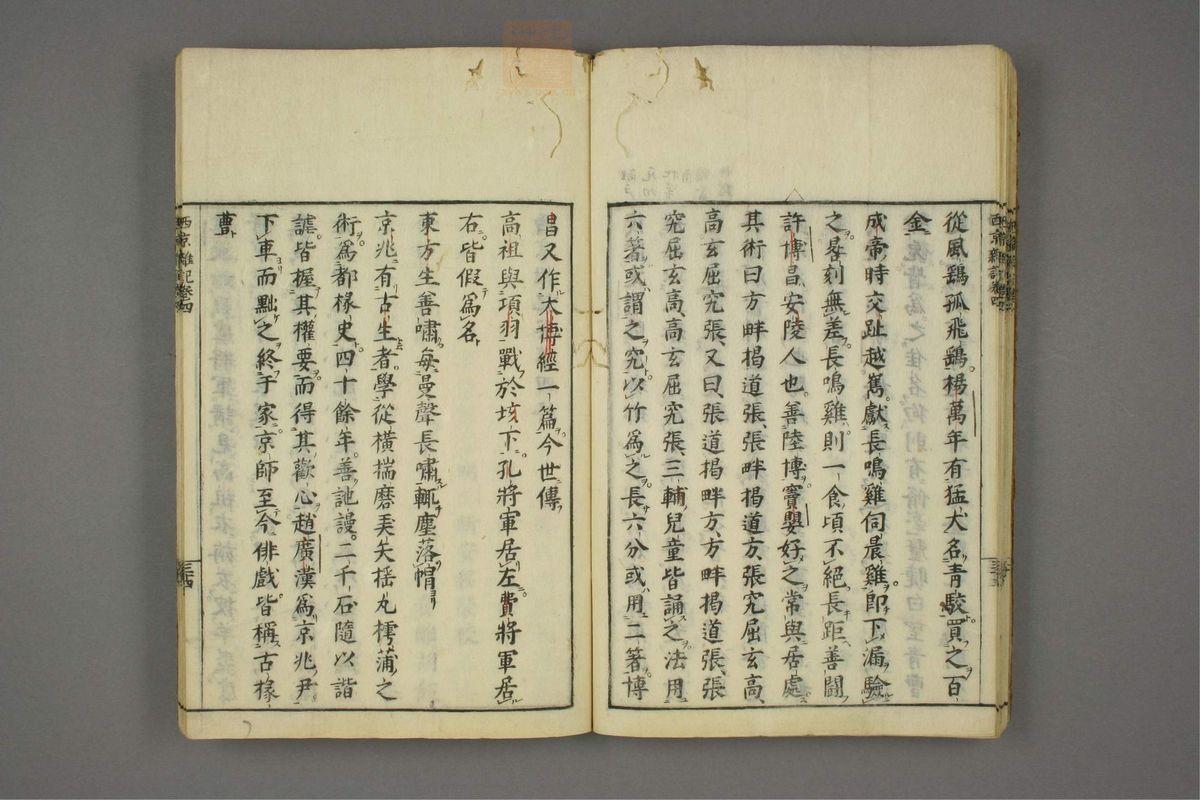 從風鷂孤飛鷂楊萬年有猛犬名青駮買之百
金
成帝時交趾越嶲獻長鳴雞伺晨雞即下漏驗
之晷刻無差長鳴雞則一食頃不絕長距善鬬
許博昌安陵人也善陸博竇嬰好之常與居處
其術曰方畔揭道張張畔揭道方張究屈玄高
高玄屈究張又曰張道揭畔方方畔揭道張張
究屈玄高高玄屈究張三輔兒童皆誦之法用
六箸或謂之究以竹爲之長六分或用二箸博
昌又作大博經一篇今世傳
高祖與項羽戰於垓下孔將軍居左費將軍居
右皆假爲名
東方生善嘯每曼聲長嘯輒塵落帽
京兆有古生者學從橫揣磨弄矢揺丸樗蒲之
術爲都掾史四十餘年善訑謾二千石隨以諧
謔皆握其權要而得其歡心趙廣漢爲京兆尹
下車而黜之終于家京師至今俳戲皆稱古掾
曹
西京雜記卷四